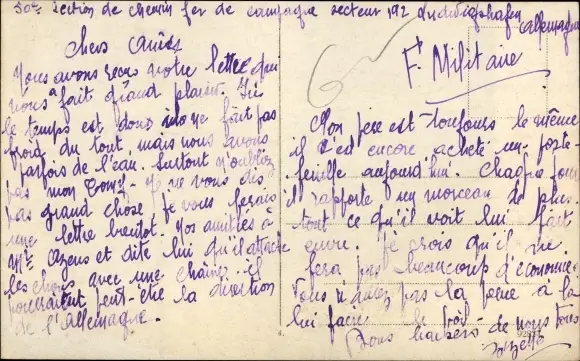 50e Section de chemin fer de campagne secteur 192 Ludwigshafen
Allemagne
Chers Amies
Nous avons reçus votre lettre qui
nous a fait grand plaisir. Ici
le temps est doux il ne fait pas
froid du tout, mais nous avons
parfois de l'eau. Surtout n'oubliez
pas mon Je ne vous dis
pas grand chose, je vous ferais
une lettre bientot. Nos amitiés à
Mr Azens et dite lui qu'il attache
les chens avec une chaîne. il
pourraient peut-être la direction
de l'Allemagne.
F. Militaire
Mon père est toujours le même
il c'est encore acheté un porte-
feuille aujourd'hui. Chaque jour
il rapporte un morceau de plus.
tout ce qu'il voit lui fait
envie. Je crois qu'il ne
fera pas beaucoup d'économies
Vous n'aurez pas la peine à la
lui faire le
Bons baisers de nous tous